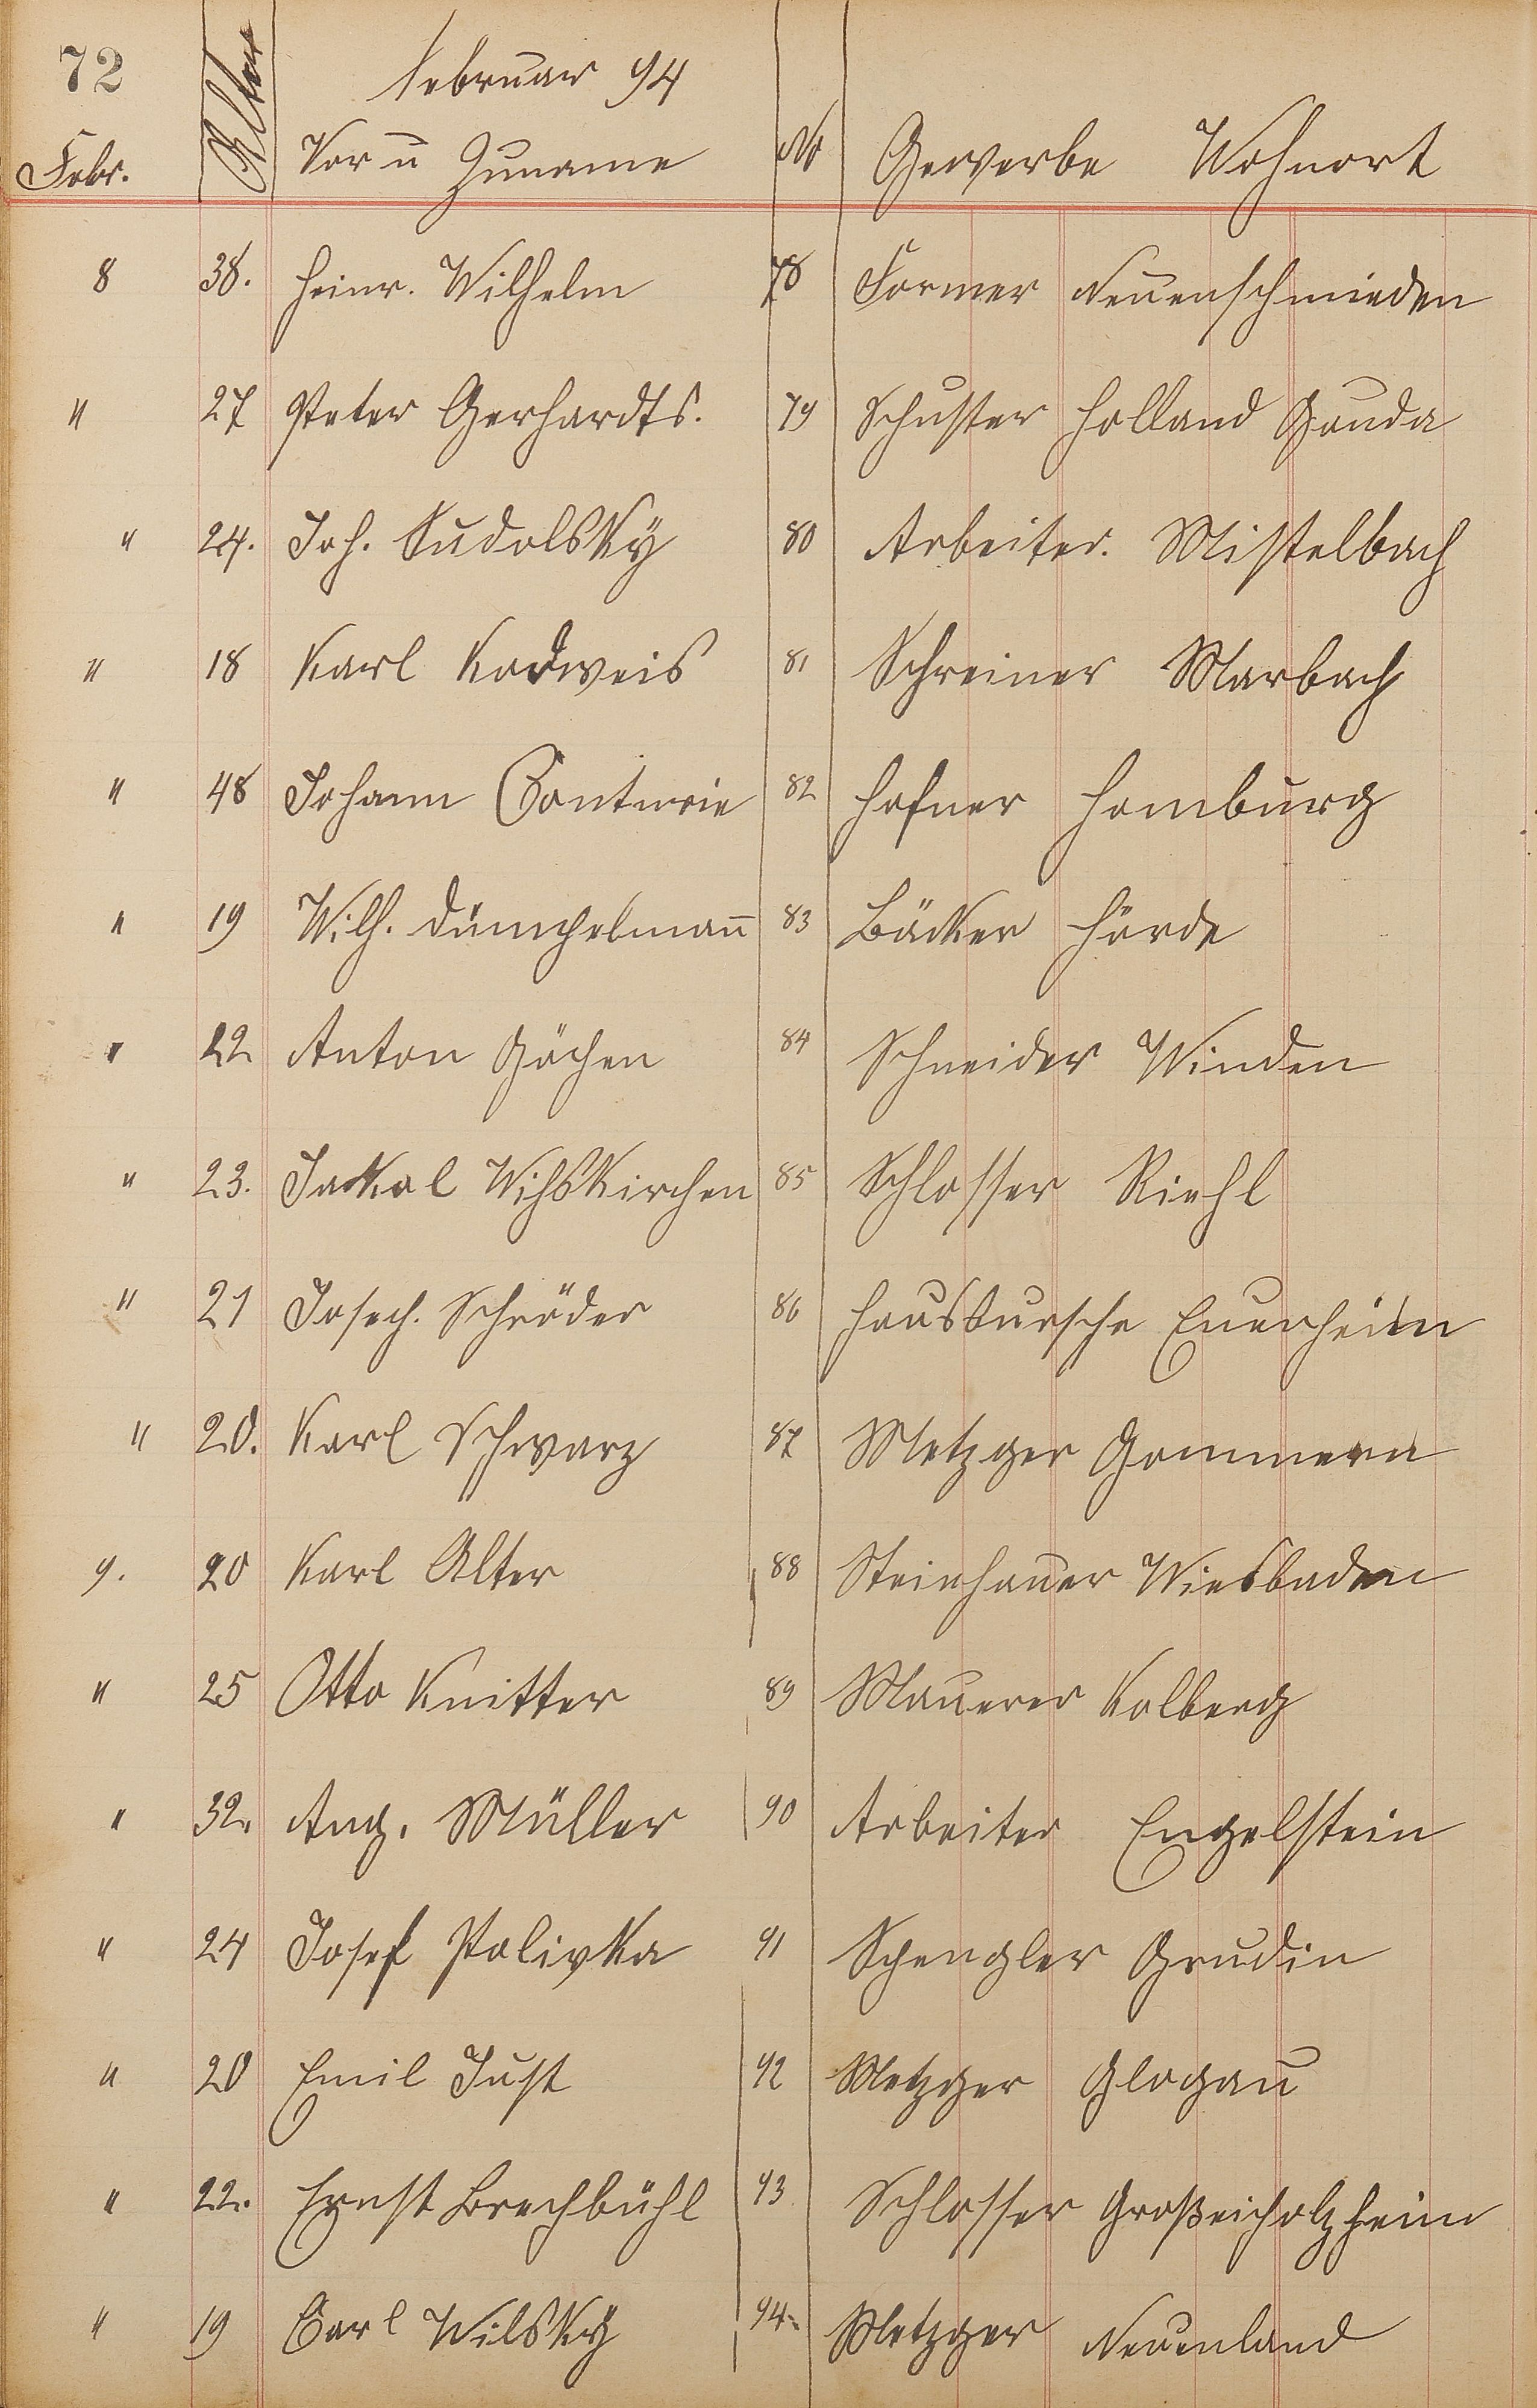 72
Februar 94
Febr. Alter Vor u Zuname No Gewerbe Wohnort
8 38. Heinr. Wilhelm 78 Former Neuenschmieden
" 27 Peter Gerhardts. 79 Schuster Holland Gouda
" 24. Joh. Sudolsky 80 Arbeiter. Mistelbach
" 18 Karl Kodweis 81 Schreiner Marbach
" 48 Johann Conturie 82 Hafner Homburg
" 19 Wilh. Dümpelmann 83 Bäcker Hörde
" 22 Anton Göpen 84 Schneider Winden
" 23. Jakob Wißkirchen 85 Schlosser Riehl
" 21 Joseph. Schröder 86 Hausbursche Euenheim
" 20. Karl Schwarz 87 Metzger Gommern
9. 20 Karl Alter 88 Steinhauer Wiesbaden
" 25 Otto Knitter 89 Maurer Kolberg
" 32. Aug. Müller 90 Arbeiter Engelstein
" 24 Josef Polivka 91 Spengler Grudin
" 20 Emil Just 92 Metzger Glogau
" 22. Ernst Brechbühl 93 Schlosser Großeicholzheim
" 19 Carl Wilsky 94. Metzger Neuenland